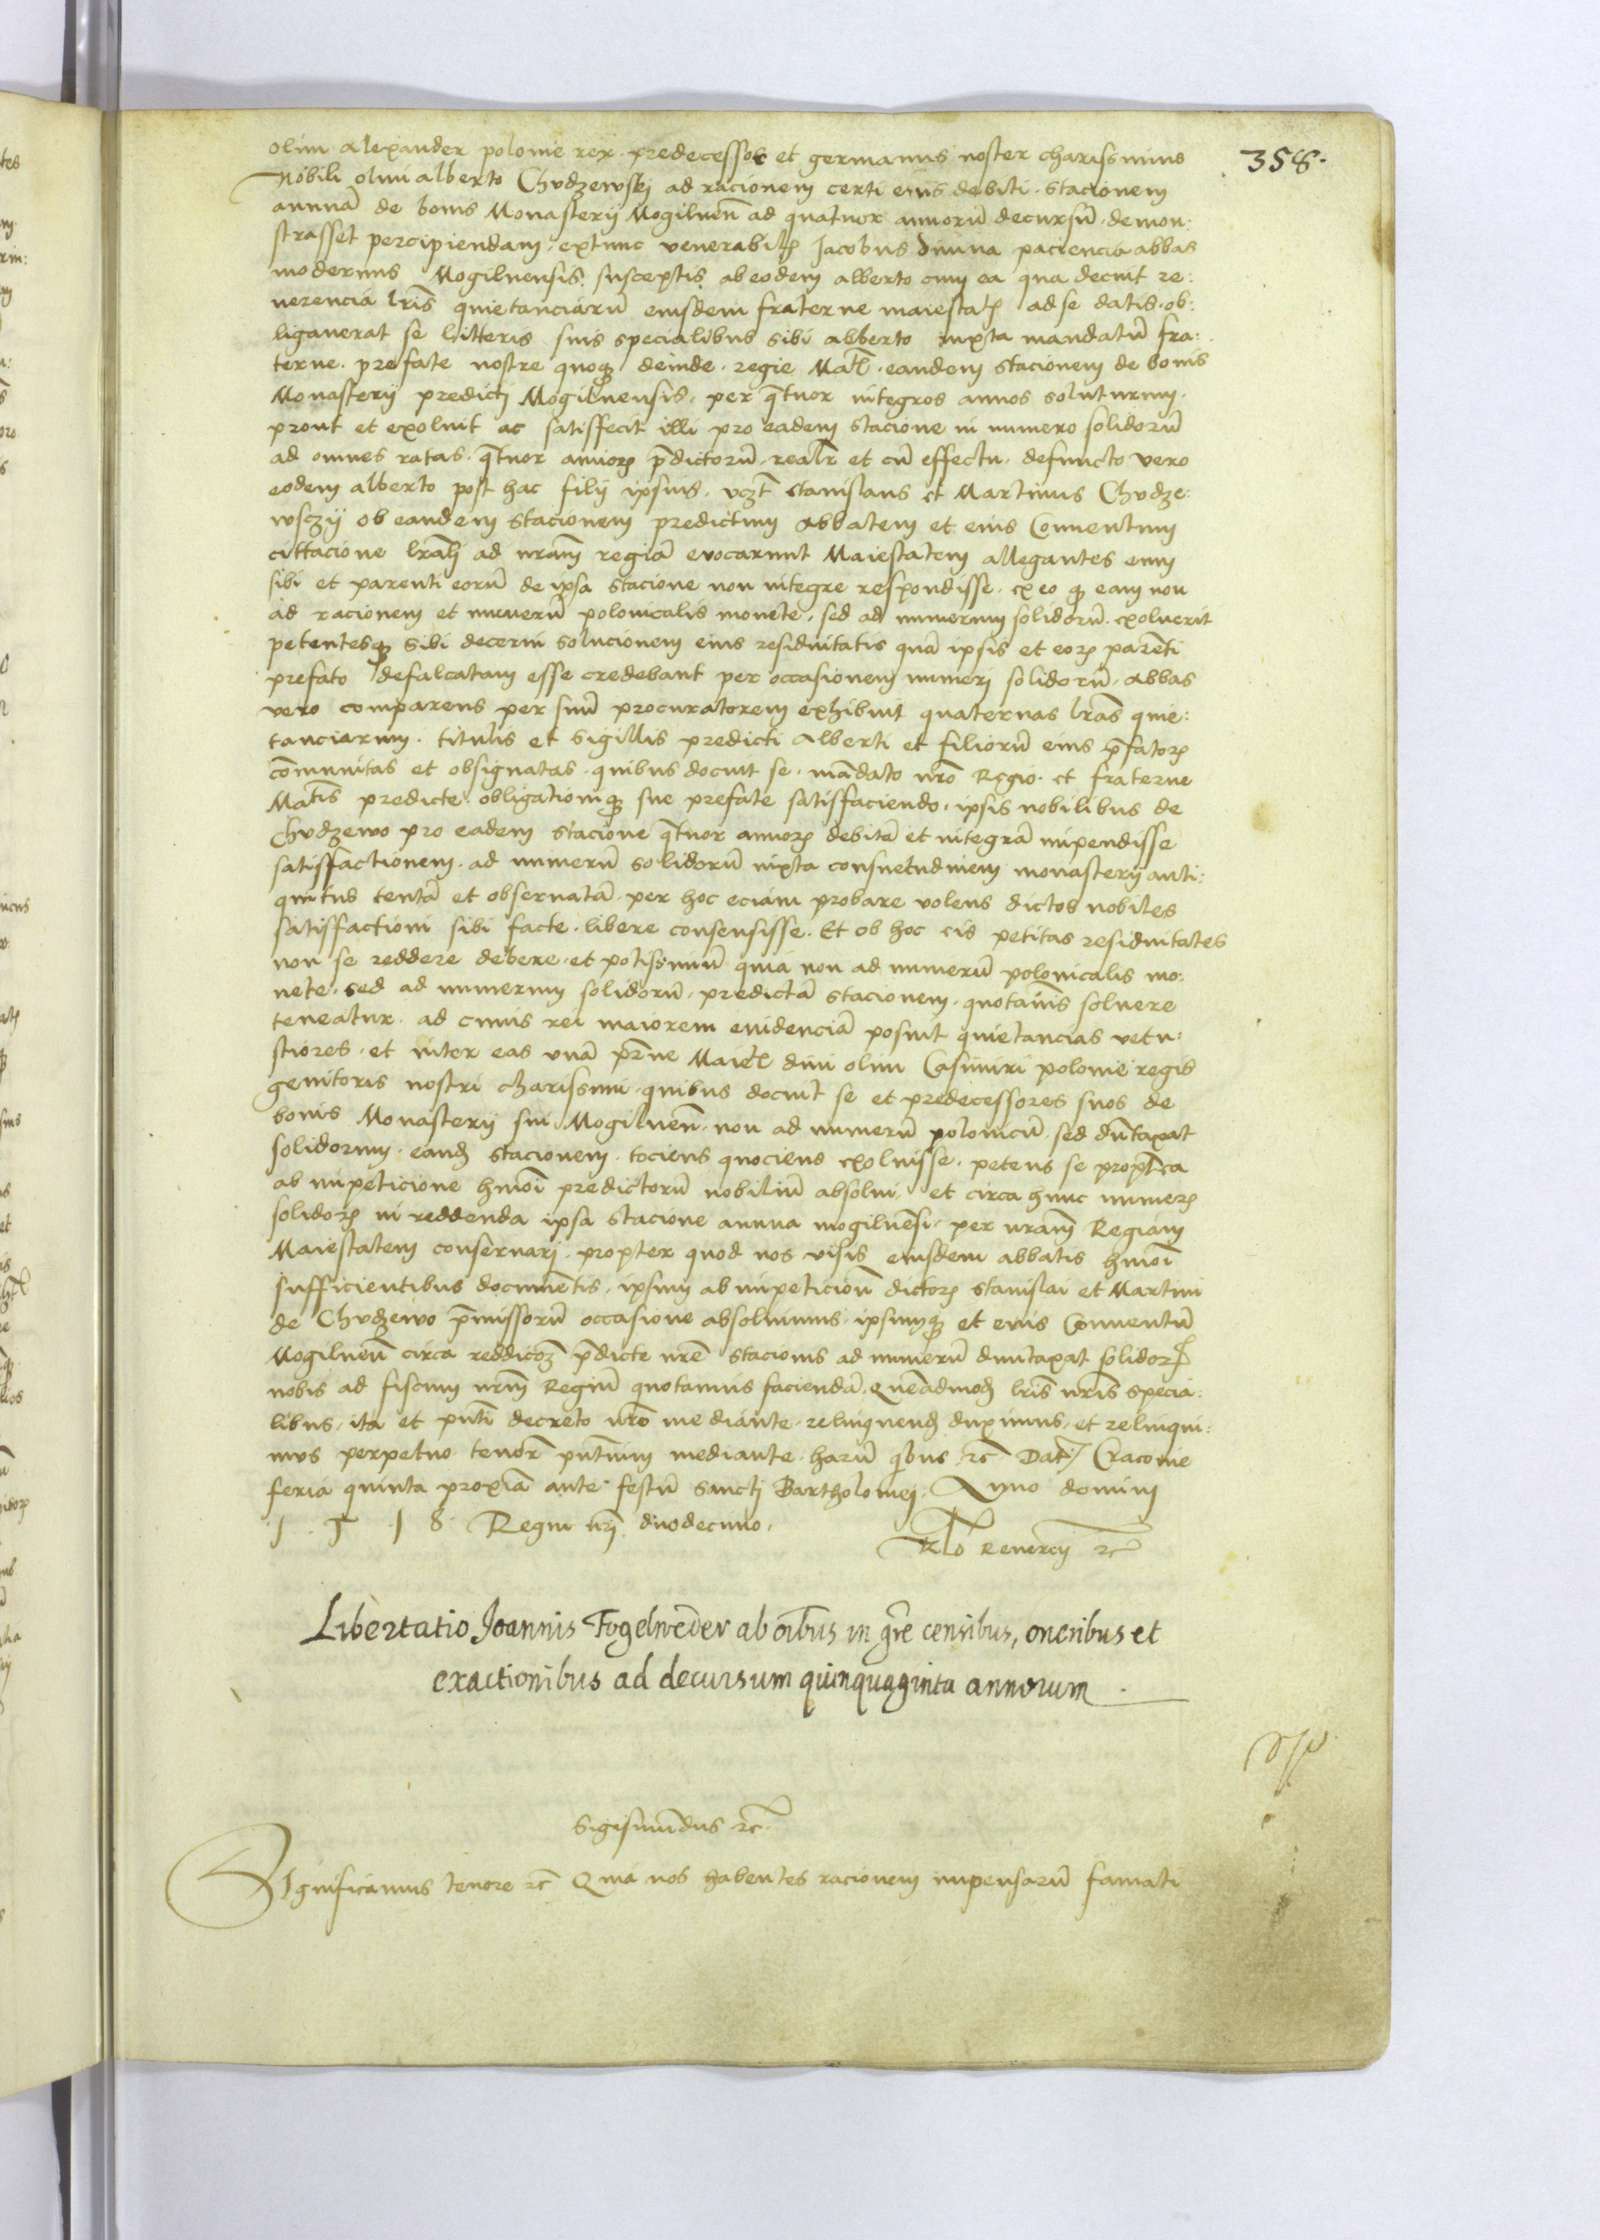 358.
olim alexander polonie rex predecessor et germanus noster charissimus
Nobili olim alberto Chudzewskj ad racionem certi eius debiti. stacionem
annuā de bonis Monasterij Mogilnēn ad quatuor annorū decursū. demon:
strasset percipiendam, extunc venerabilis Jacobus divina paciencia abbas
modernus Mogilnensis, susceptis ab eodem alberto cum ea qua decuit re:
verencia lrīs quietanciarū eiusdem fraterne maiestatis ad se datis. ob:
ligaverat se litteris suis specialibus sibi alberto iuxta mandatū fra:
terne. prefate nostre quoqȝ deinde. regie Matis. eandem stacionem de bonis
Monasterij predictj Mogilnensis, per qtuor integros annos soluturum.
prout et exoluit ac satisfecit illi pro eadem stacione in numero solidorū
ad omnes ratas. qtuor annorȝ pdictorū. realr et cū effectu. defuncto vero
eodem alberto post hac filij ipsius. vczt Stanislaus et Martinus Chudze:
wsczij ob eandem stacionem predictum abbatem et eius Conventum
cittacione lralj ad nram regiā evocarunt Maiestatem allegantes eum
sibi et parenti eorū de ipsa stacione non integre respondisse. ex eo qȝ eam non
ad racionem et numerū polonicalis monete, sed ad numerum solidorū. exoluerit
petentesqȝ sibi decerni solucionem eius residuitatis quā ipsis et eorȝ parēti
prefato defalcatam esse credebant per occasionem numerj solidorū. abbas
vero comparens per suū procuratorem exhibuit quaternas lrās quie:
tanciarum. titulis et sigillis predicti Alberti et filiorū eius pfatorȝ
cōmunitas et obsignatas. quibus docuit se. mādato nrō Regio. et fraterne
Matis predicte. obligationiqȝ sue prefate satisfaciendo. ipsis nobilibus de
Chudzewo pro eadem stacione qtuor annorȝ debitā et integrā impendisse
satisfactionem. ad numerū solidorū iuxta consuetudinem monasterij anti:
quitus tentā et observatā. per hoc eciam probare volens dictos nobiles
satisfactioni sibi facte. libere consensisse. Et ob hoc eis petitas residuitates
non se reddere debere. et potissimū quia non ad numerū polonicalis mo:
nete. sed ad numerum solidorū. predictā stacionem. quotānis solvere
teneatur. ad cuius rei maiorem evidenciā posuit quietancias vetu:
stiores. et inter eas unā prne Maietis divi olim Casimiri polonie regis
genitoris nostri charissimi. quibus docuit se et predecessores suos de
bonis Monasterij sui Mogilnēn. non ad numerū polonicū. sed dūtaxat
solidorum. eandȝ stacionem. tociens quociens exoluisse. petens se proptea
ab impeticione hmōi predictorū nobiliū absolui. et circa hunc numerȝ
solidorȝ in reddenda ipsa stacione annua mogilnēsi. per nram Regiam
Maiestatem conservarj. propter quod nos visis eiusdem abbatis hmōi
sufficientibus documētis. ipsum ab impeticiōn dictorȝ Stanislai et Martini
de Chudzewo pmissorū occasione absoluimus. ipsumqȝ et eius Conventū
Mogilnēn circa reddicōȝ pdicte nrē stacionis ad numerū duntaxat solidorȝ
nobis ad fiscum nrm Regiū quotannis faciendā. Quēadmodȝ lris nris specia:
libus, ita et pnti decreto nrō mediante. relinquendȝ duximus. et relinqui:
mus perpetuo tenore pntium mediante. harū qibus etc Dat Cracovie
feria quinta proxīa ante festū Sanctj Bartholomej. Anno dominj
1 5 1 8. Regni nrj duodecimo.
Rlo Reverendi etc
Libertatio Joannis Fogelweder ab oibus in gre censibus, oneribus et
exactionibus ad decursum quinquaginta annorum.
Sigismūdus etc.
Significamus tenore etc Quia nos habentes racionem impensarū famati